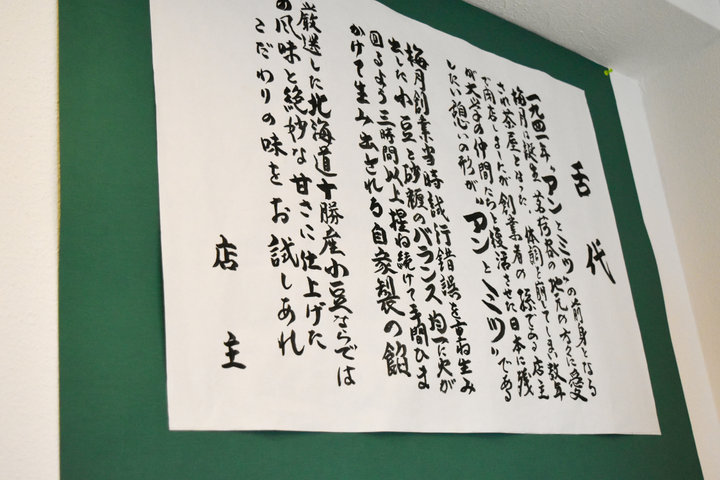 舌代
一九四一年、"アンとミツ"の前身となる
梅月は誕生、茗荷谷の地元の方々に愛
され茶屋となった、体調を崩してしまい数年
で閉店しましたが創業者の孫である店主
が大学の仲間たちと復活させた日本に残
したい想いの形が"アンとミツ"である
梅月創業当時試行錯誤を重ね生み
出した小豆と砂糖のバランス均一に火が
回るよう三時間以上捏ね続けて手間ひま
かけて生み出される自家製の餡
厳選した北海道十勝産小豆ならでは
の風味と絶妙な甘さに仕上げた
こだわりの味をお試しあれ
店主